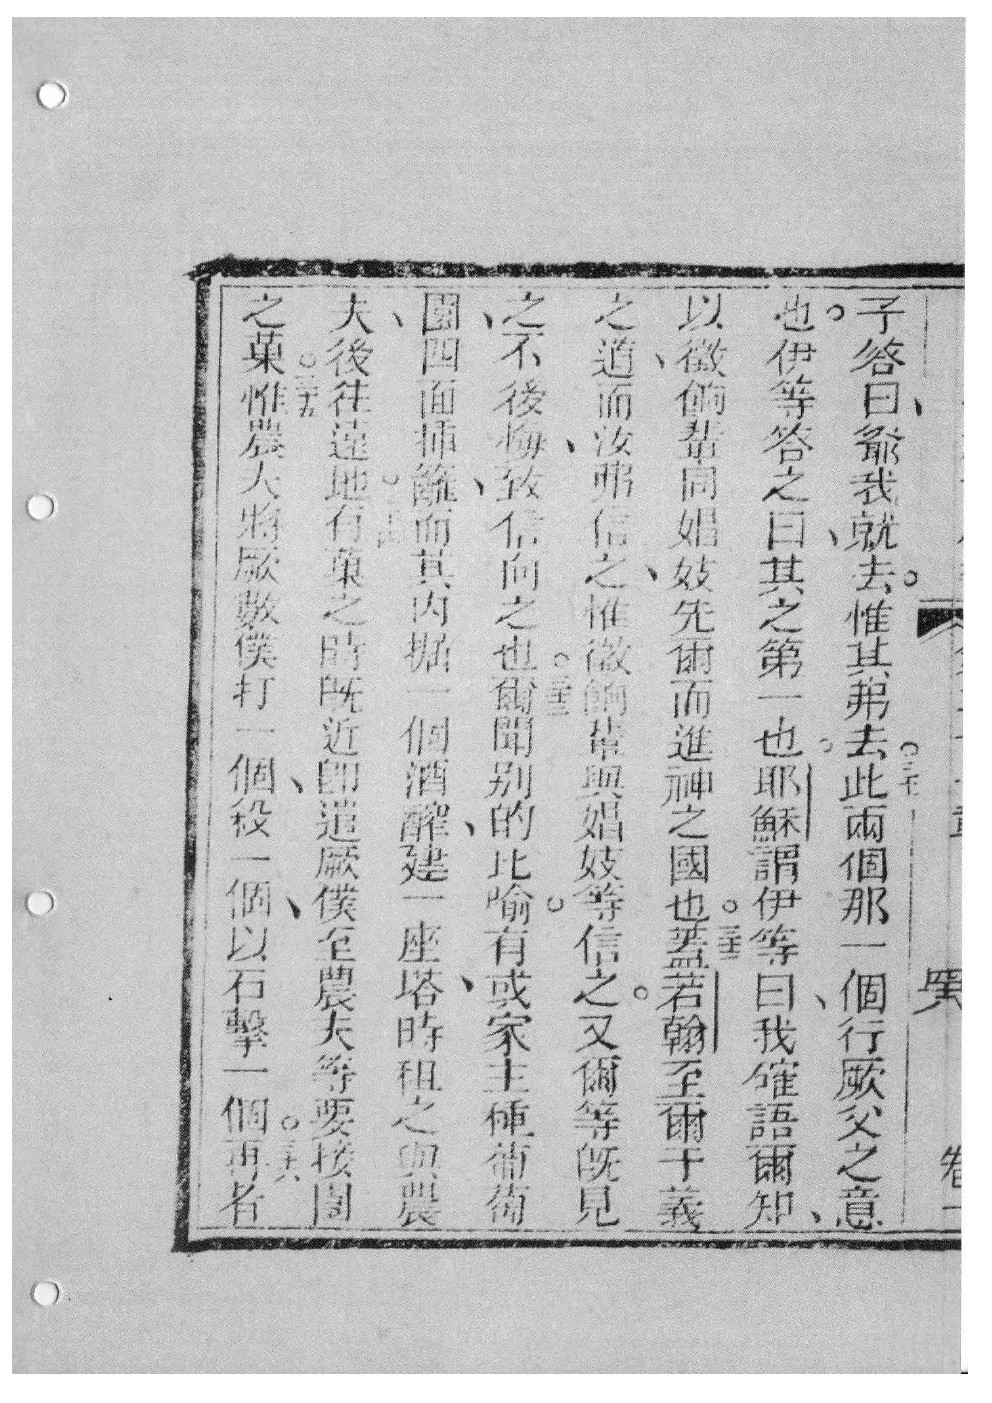 子答曰爺我就去惟其弟去三十此兩個那一個行厥父之意
也伊等答之曰其之第一也耶穌謂伊等曰我確語爾知
以徵餉輩同娼妓先爾而進神之國也三十二蓋若翰至爾于義
之道而汝弗信之惟徵餉輩與娼妓等信之又爾等既見
之不後悔致信向之也三十三爾聞別的比喻有或家主種葡萄
園四面插籬而其內掘一個酒醡建一座塔時租之與農
夫後往遠地三十四有菓之時既近即遣厥僕至農夫等要接園
之菓三十五惟農夫將厥數僕打一個殺一個以石擊一個三十六再者